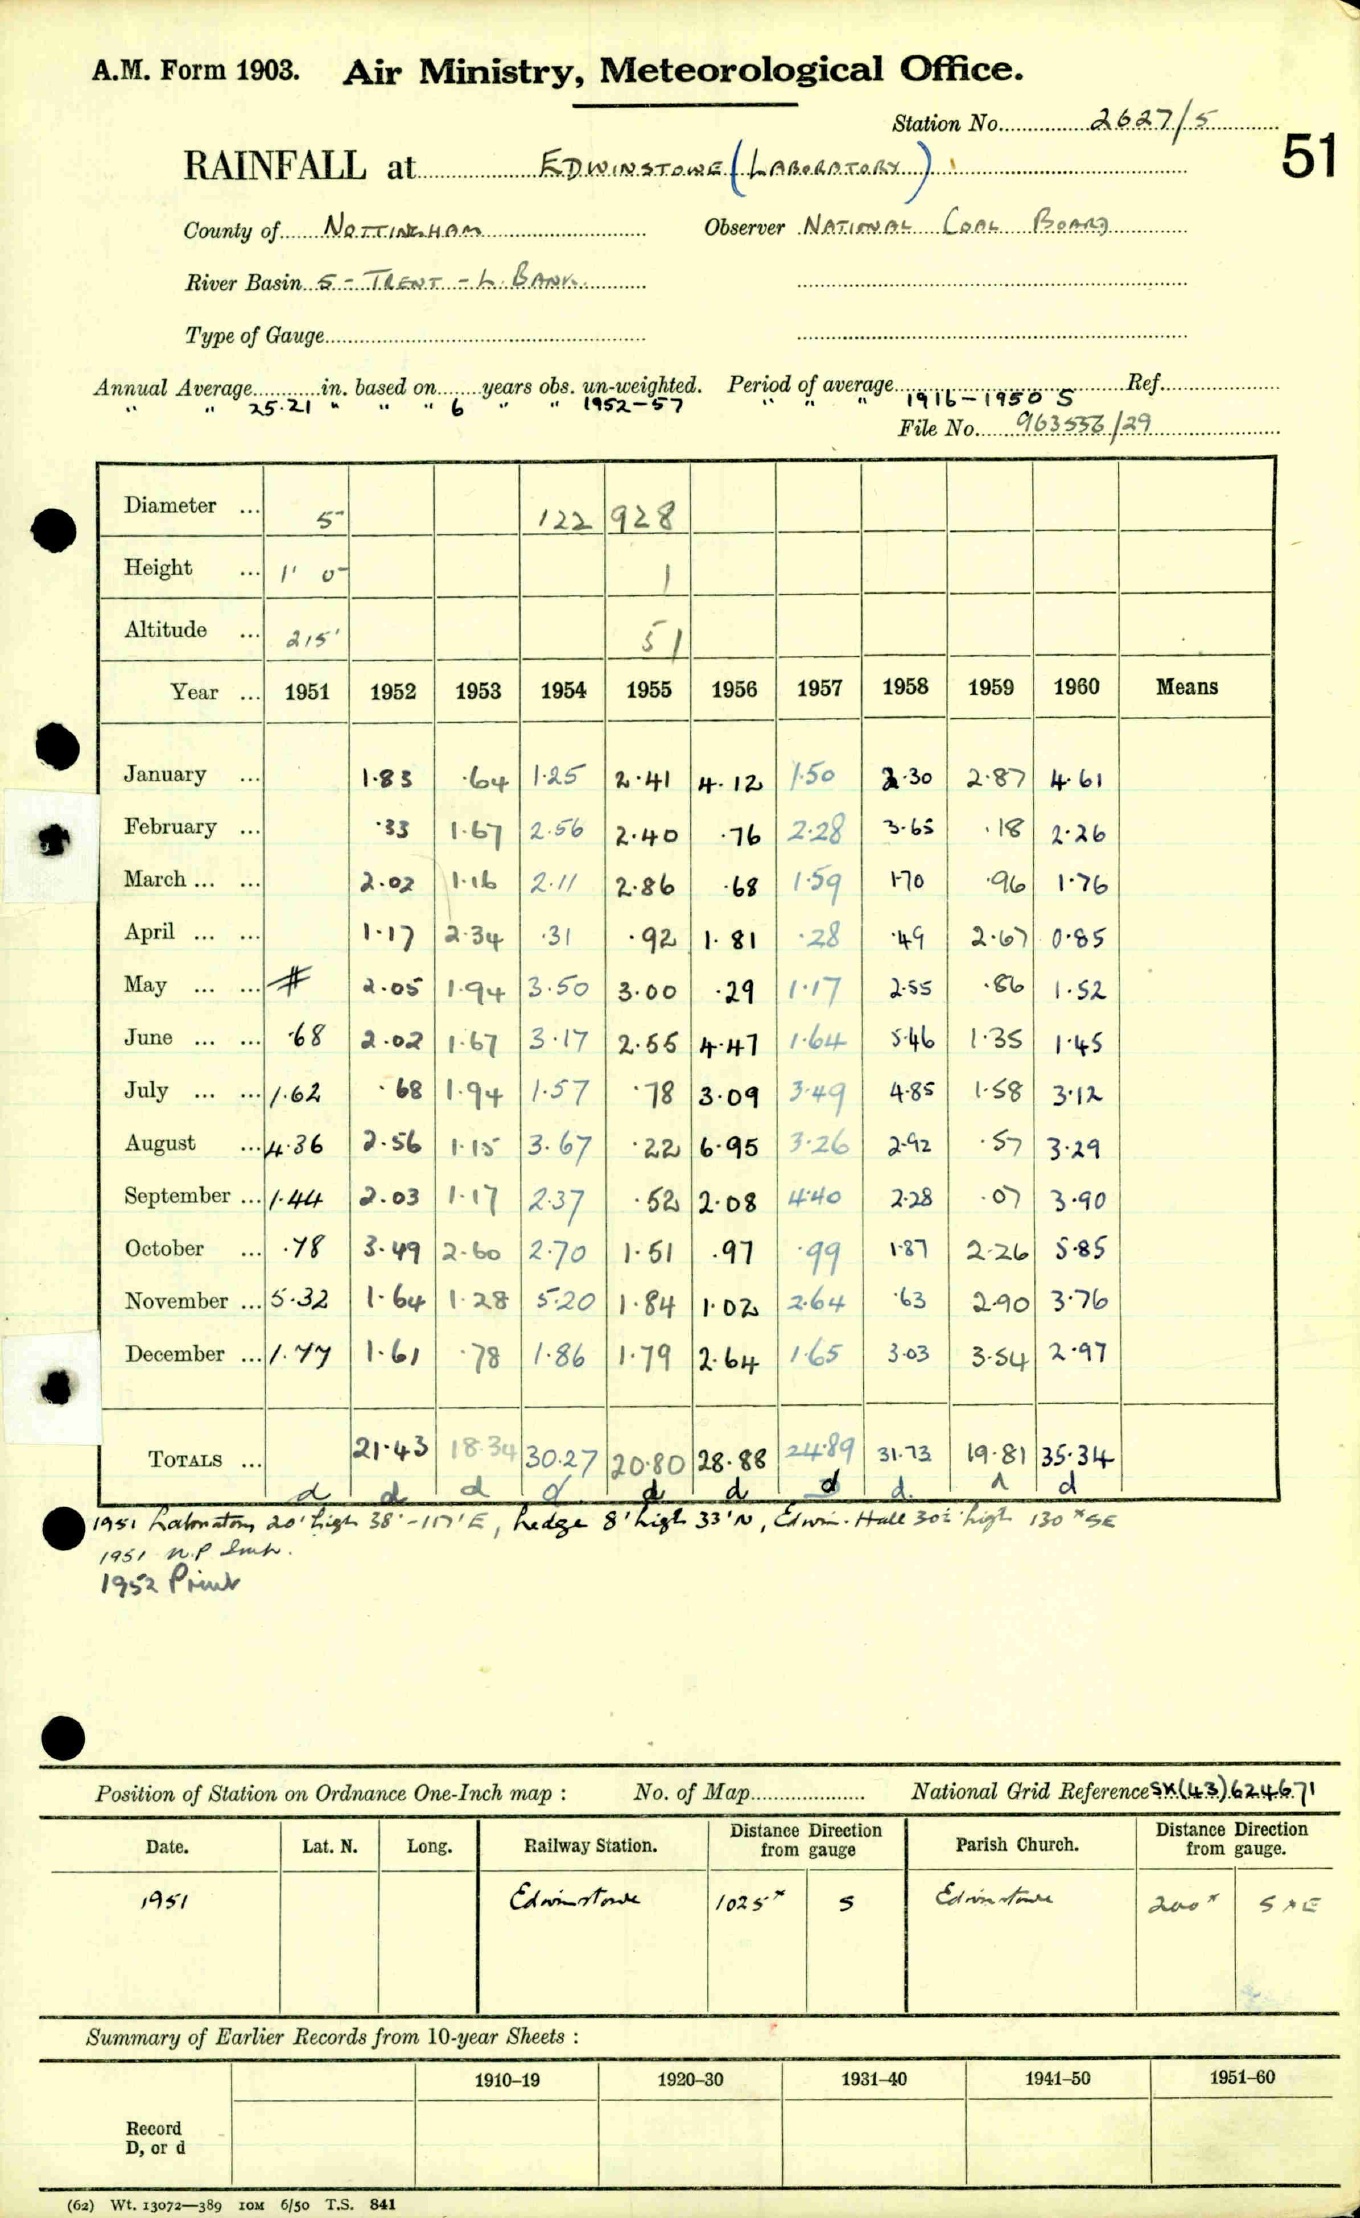 A.M. Form 1903. Air Ministry, Meteorological Office.
Station No. 2627/5
51
RAINFALL at EDWINSTOWE (LABORATORY)
County of NOTTINGHAM Observer NATIONAL COAL BOARD
River Basin 5 - TRENT - L. BANK.
Type of Gauge
Annual Average in. based on years obs. un-weighted. Period of average Ref.
" " 25.21 " " " 6 " " 1952-57 " " " 1916-1950 S
File No. 963556/29
Diameter ... 5" 122 928
Height ... 1' 0" 1
Altitude ... 215' 51
Year ... 1951 1952 1953 1954 1955 1956 1957 1958 1959 1960 Means
January ... 1.83 .64 1.25 2.41 4.12 1.50 2.30 2.87 4.61
February ... .33 1.67 2.56 2.40 .76 2.28 3.65 .18 2.26
March ... ... 2.02 1.16 2.11 2.86 .68 1.59 1.70 .96 1.76
April ... ... 1.17 2.34 .31 .92 1.81 .28 .49 2.67 0.85
May ... ... # 2.05 1.94 3.50 3.00 .29 1.17 2.55 .86 1.52
June ... ... .68 2.02 1.67 3.17 2.55 4.47 1.64 5.46 1.35 1.45
July ... ... 1.62 .68 1.94 1.57 .78 3.09 3.49 4.85 1.58 3.12
August ... 4.36 2.56 1.15 3.67 .22 6.95 3.26 2.92 .57 3.29
September ... 1.44 2.03 1.17 2.37 .52 2.08 4.40 2.28 .07 3.90
October ... .78 3.49 2.60 2.70 1.51 .97 .99 1.87 2.26 5.85
November ... 5.32 1.64 1.28 5.20 1.84 1.02 2.64 .63 2.90 3.76
December ... 1.77 1.61 .78 1.86 1.79 2.64 1.65 3.03 3.54 2.97
TOTALS ... 21.43 18.34 30.27 20.80 28.88 24.89 31.73 19.81 35.34
d d d d d d d d. d d
1951 Laboratory 20' high 38'-117' E, hedge 8' high 33' N, Edwin. Hall 30' high 130 x SE
1951 N.P
1952 Print
Position of Station on Ordnance One-Inch map : No. of Map National Grid Reference SK(43)624671
Date. Lat. N. Long. Railway Station. Distance from Direction gauge Parish Church. Distance from Direction gauge.
1951 Edwinstowe 1025x S Edwinstowe 200x S x E
Summary of Earlier Records from 10-year Sheets :
1910–19 1920–30 1931–40 1941–50 1951–60
Record
D, or d
(62) Wt. 13072—389 10M 6/50 T.S. 841